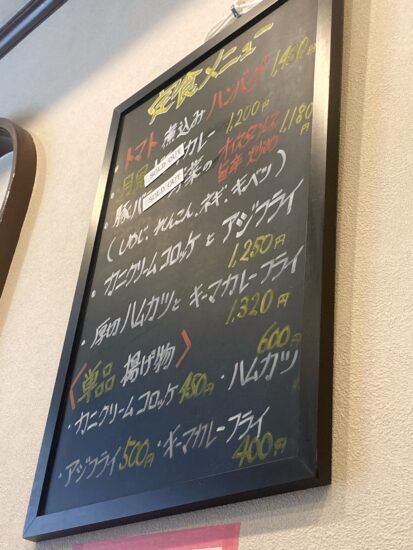 定食メニュー
・トマト煮込みハンバーグ 1,450円
SOLD OUT カレー 1,200円
SOLD OUT
・豚バラ 菜の オイスターソース 旨辛炒め 1,180円
(しめじ、れんこん、ネギ、キャベツ)
・カニクリームコロッケとアジフライ
1,250円
・厚切ハムカツとキーマカレーフライ
1,320円
〈単品 揚げ物〉
・カニクリームコロッケ 450円 ・ハムカツ 600円
・アジフライ 500円 ・キーマカレーフライ
400円